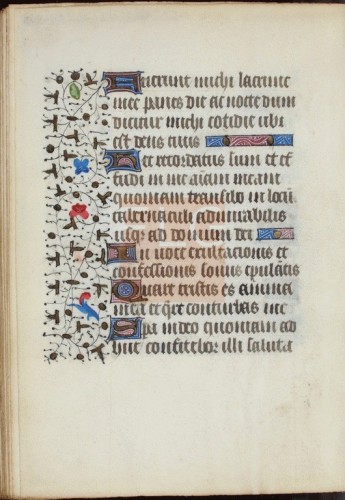 Fuerunt michi lacrime
mee panes die ac nocte dum
dicitur michi cotidie ubi
est deus tuus
Hec recordatus sum et ef
fudi in me aīam meam
quoniam transibo in locū
tabernaculi admirabilis
usq̄ ad domum dei
In uoce exultationis et
confessionis sonus epulātis
Quare tristis es anima
mea et q̄re conturbas me
Spa in deo quoniam ad
huc confitebor illi saluta